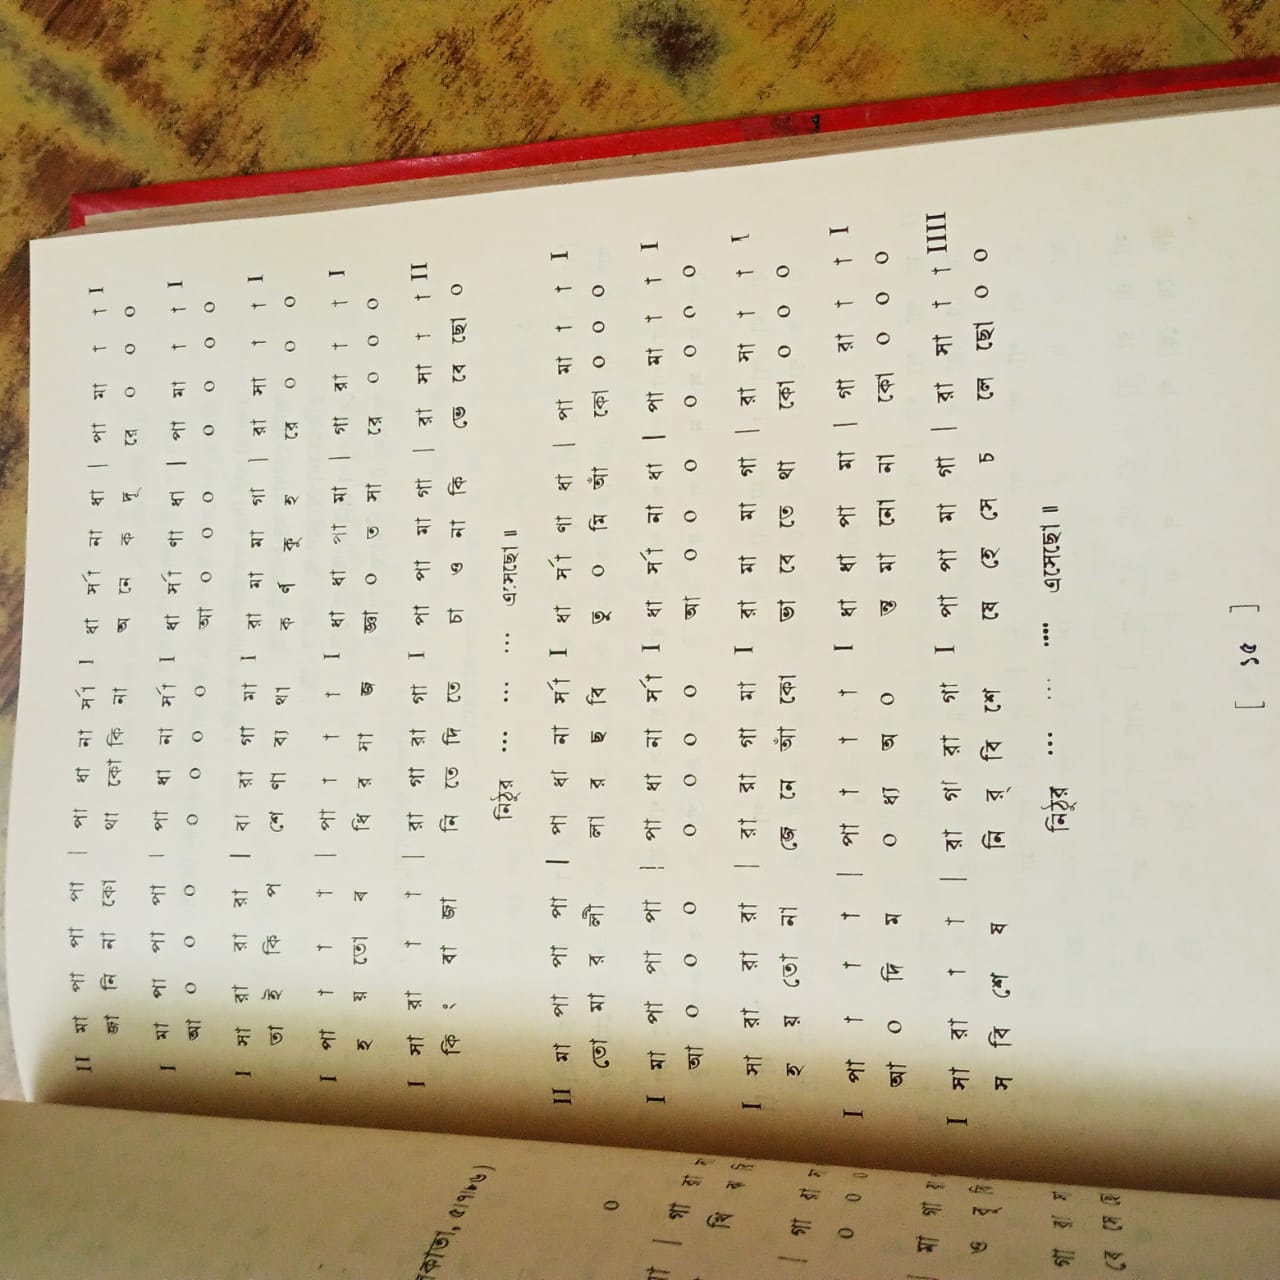 II মা পা পা পা | পা ধা না র্সা I ধা র্সা না ধা | পা মা † † I
জা নি না কো থা কো কি না অ নে ক দূ রে ০ ০ ০
I মা পা পা পা | পা ধা না র্সা I ধা র্সা ণা ধা | পা মা † † I
আ ০ ০ ০ ০ ০ ০ ০ আ ০ ০ ০ ০ ০ ০ ০
I সা রা রা রা | রা রা গা মা I রা মা মা গা | রা সা † † I
তা ই কি প শে ণা ব্য থা ক র্ণ কু হ রে ০ ০ ০
I পা † † † | পা † † † I ধা ধা পা মা | গা রা † † I
হ য় তো ব ধি র সা জ জ্ঞা ০ ত সা রে ০ ০ ০
I সা রা † † | রা গা রা গা I পা পা মা গা | রা সা † † II
কি ং বা জা নি তে দি তে চা ও না কি ভে বে ছো ০
নিঠুর ... ... ... এসেছো ॥
II মা পা পা পা | পা ধা না র্সা I ধা র্সা ণা ধা | পা মা † † I
তো মা র লী লা র ছ বি তু ০ মি আঁ কো ০ ০ ০
I মা পা পা পা | পা ধা না র্সা I ধা র্সা না ধা | পা মা † † I
আ ০ ০ ০ ০ ০ ০ ০ আ ০ ০ ০ ০ ০ ০ ০
I সা রা রা রা | রা রা গা মা I রা মা মা গা | রা সা † † I
হ য় তো না জে নে আঁ কো ভা বে তে থা কো ০ ০ ০
I পা † † † | পা † † † I ধা ধা পা মা | গা রা † † I
আ ০ দি ম ০ ধ্য অ ০ ন্ত মা নো না কো ০ ০ ০
I সা রা † † | রা গা রা গা I পা পা মা গা | রা সা † † IIII
স বি শে ষ নি র্ বি শে ষে হে সে চ লে ছো ০ ০
নিঠুর ... ... .... এসেছো ॥
[ ১৫ ]